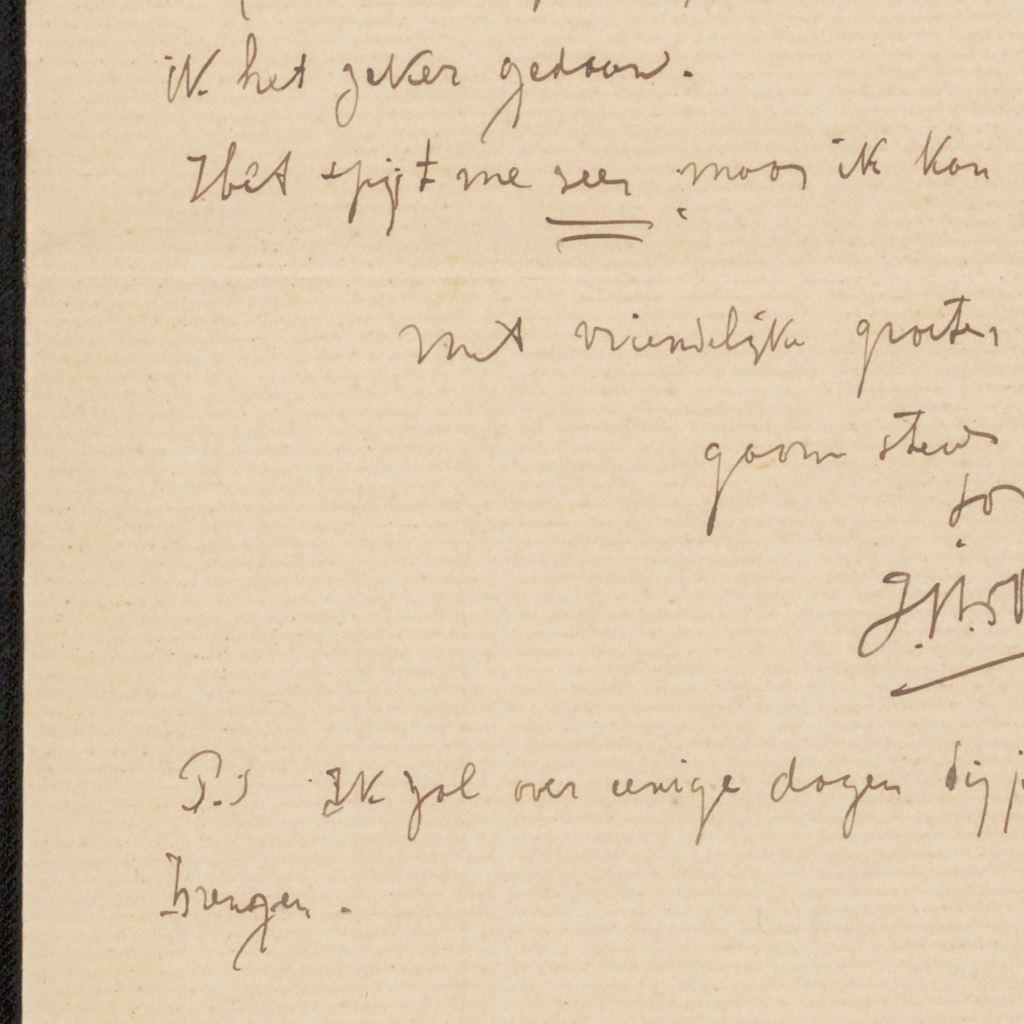 ik het zeker gedaan.
Het spijt me zeer maar ik kan
met vriendelijke groeten
gaarne steeds
P.S Ik zal over eenige dagen bij
brengen.